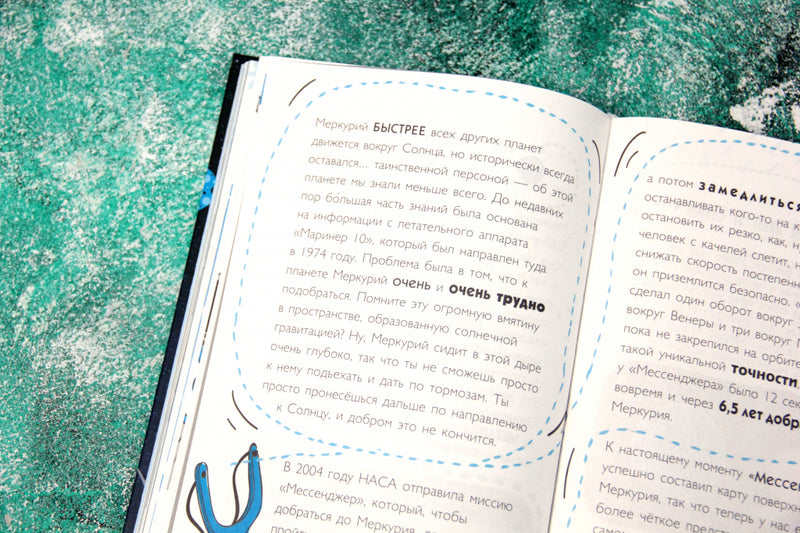 Меркурий БЫСТРЕЕ всех других планет
движется вокруг Солнца, но исторически всегда
оставался... таинственной персоной — об этой
планете мы знали меньше всего. До недавних
пор бо́льшая часть знаний была основана
на информации с летательного аппарата
«Маринер 10», который был направлен туда
в 1974 году. Проблема была в том, что к
планете Меркурий очень и очень трудно
подобраться. Помните эту огромную вмятину
в пространстве, образованную солнечной
гравитацией? Ну, Меркурий сидит в этой дыре
очень глубоко, так что ты не сможешь просто
к нему подъехать и дать по тормозам. Ты
просто пронесёшься дальше по направлению
к Солнцу, и добром это не кончится.
В 2004 году НАСА отправила миссию
«Мессенджер», который, чтобы
добраться до Меркурия,
пройти
а потом замедлиться
останавливать кого-то на
остановить их резко, как,
человек с качелей слетит,
снижать скорость
он приземлится безопасно.
сделал один оборот вокруг
вокруг Венеры и три вокруг
пока не закрепился на
такой уникальной точности,
у «Мессенджера» было 12
вовремя и через 6,5 лет
Меркурия.
К настоящему моменту
успешно составил карту
Меркурия, так что теперь у нас
более чёткое